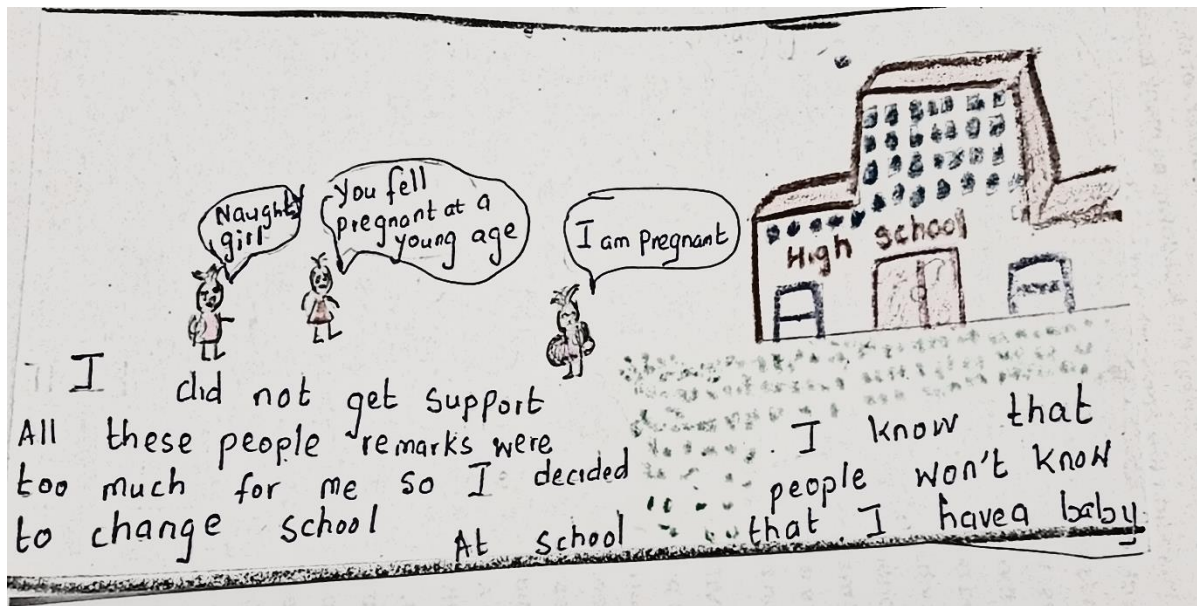 Naughty
girl
You fell
pregnant at a
young age
I am pregnant
High school
I did not get support
All these people remarks were
too much for me so I decided
to change school
At school
I know that
people won't know
that I have a baby